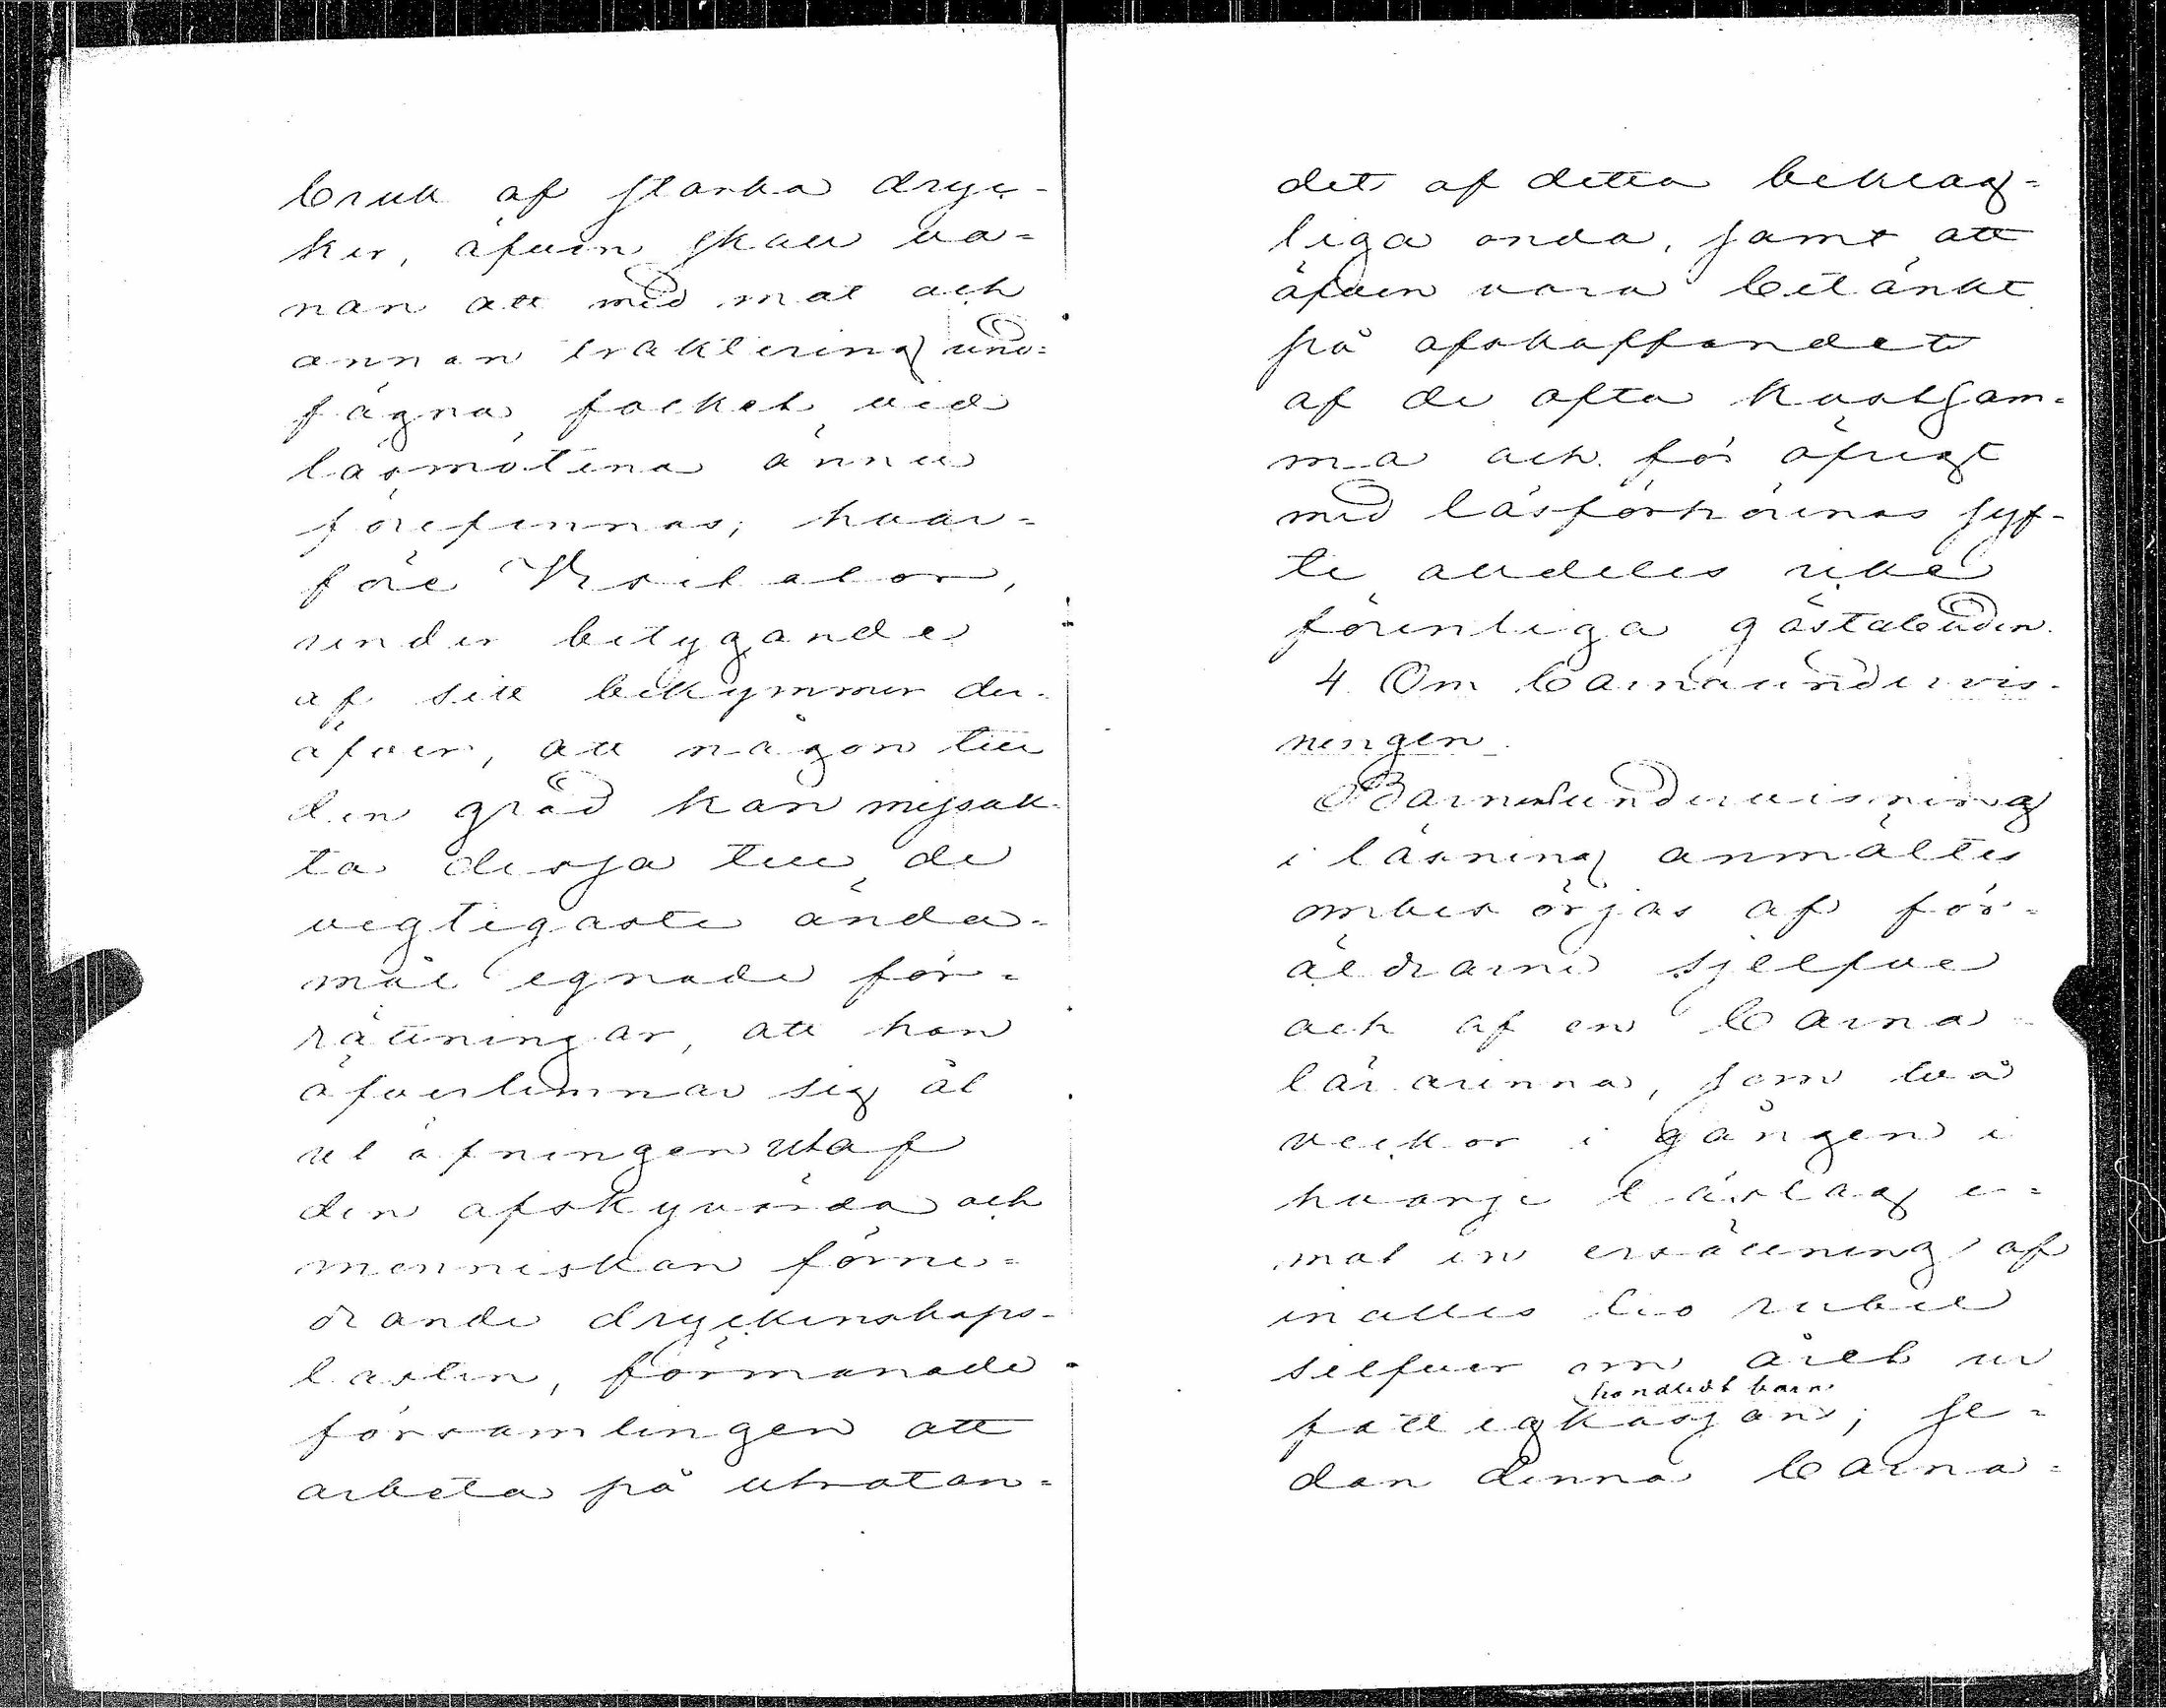 bruk af starka dryc-
ker, äfven skall va-
nan att med mat och
annan traktering und-
fägna folket vid
läsmötena ännu
förefinnas; hvar-
före Visitator,
under betygande
af sitt bekymmer der-
öfver, att någon till
den grad kan missak-
ta dessa till de
vigtigaste ända-
mål egnade för-
rättningar, att han
öfverlemnar sig åt
utöfningen utaf
den afskyvärda och
menniskan förne-
drande dryckenskaps-
lasten, förmanade
församlingen att
arbeta på utrotan-
det af detta beklag-
liga onda, samt att
äfven vara betänkt
på afskaffandet
af de ofta kostsam-
ma och för öfrigt
med läsförhörenas syf-
te alldeles icke
förenliga gästabuden.
4. Om barnaundervis-
ningen.
Barnaundervisning
i läsning anmältes
ombesörjas af för-
äldrarne sjelfve
och af en barna-
lärarinna, som två
veckor i gången i
hvarje läslag e-
mot en ersättning af
inalles tio rubel
silfver om året ur
fattigkassan, handledt barn; se-
dan denna barna-